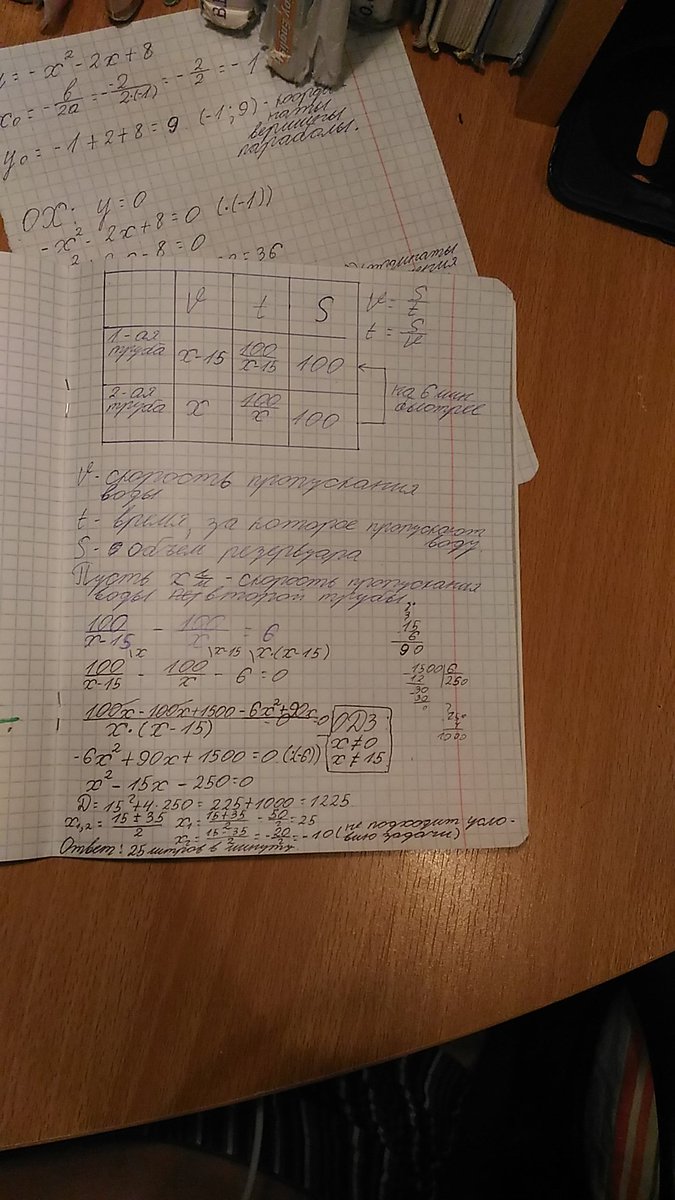 = -x² - 2x + 8
x₀ = -в/2a = - -2/2·(-1) = -2/2 = -1
y₀ = -1 + 2 + 8 = 9 (-1; 9) - коорди
наты
вершины
параболы.
OX: y = 0
-x² - 2x + 8 = 0 (·(-1))
- 8 = 0
= 36
V t S
1-ая труба x-15 100/x-15 100
2-ая труба x 100/x 100
на 6 мин быстрее
V = S/t
t = S/V
V - скорость пропускания
воды
t - время, за которое пропускают
воду.
S - объём резервуара
Пусть x - скорость пропускания
воды второй трубы
100/x-15 - 100/x = 6
100/x-15 \x - 100/x \x-15 - 6 \x·(x-15) = 0
100x - 100x + 1500 - 6x² + 90x / x·(x-15) = 0
ОДЗ
x ≠ 0
x ≠ 15
-6x² + 90x + 1500 = 0 (:(-6))
x² - 15x - 250 = 0
D = 15² + 4·250 = 225 + 1000 = 1225
x₁,₂ = 15 ± 35/2 x₁ = 15+35/2 = 50/2 = 25
x₂ = 15-35/2 = -20/2 = -10 (не подходит усло-
вию задачи)
Ответ: 25 литров в минуту.
3
15
6
90
1500 6
12 250
30
30
0
250
4
1000